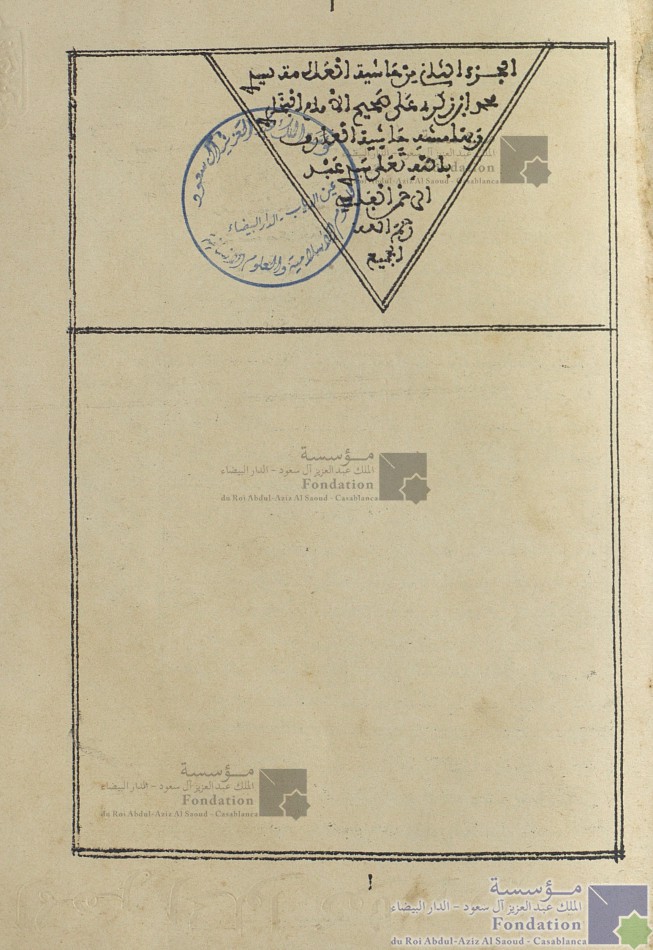 الجزء الثاني من حاشية العلامة سيدي
محمد ابن زكري على صحيح الإمام البخاري
وبهامشه حاشية العارف
بالله تعالى سيدي عبد
الرحمن الفاسي
رحم الله
الجميع
عين الذياب - الدار البيضاء
الإسلامية والعلوم الإنسانية
مؤسسة
الملك عبد العزيز آل سعود - الدار البيضاء
Fondation
du Roi Abdul-Aziz Al Saoud - Casablanca
مؤسسة
الملك عبد العزيز آل سعود - الدار البيضاء
Fondation
du Roi Abdul-Aziz Al Saoud - Casablanca
مؤسسة
الملك عبد العزيز آل سعود - الدار البيضاء
Fondation
du Roi Abdul-Aziz Al Saoud - Casablanca
مؤسسة
الملك عبد العزيز آل سعود - الدار البيضاء
Fondation
du Roi Abdul-Aziz Al Saoud - Casablanca